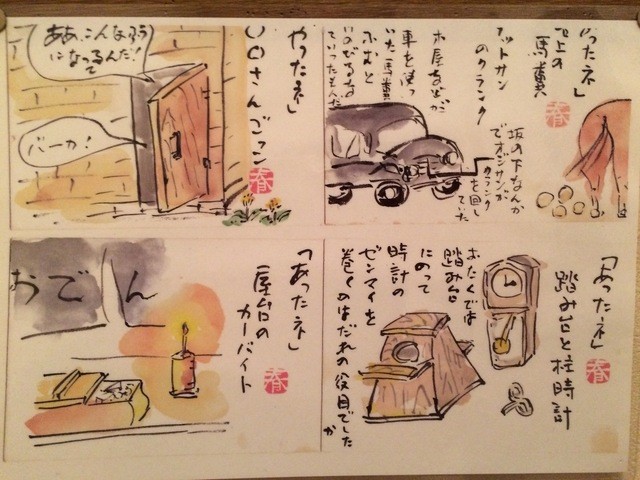 「あったネ」
路上の
馬糞
春
ダットサン
のクランク
坂の下なんか
でオジサンが
クランク
を回し
ていた
木屋などが
車を使っ
いた馬糞
ふむと
やったネ」
〇〇さんごっこ
春
ああ、こんなふう
になってるんだ!
バーカ!
「あったネ」
踏み台と柱時計
春
おたくでは
踏み台
にのって
時計の
ゼンマイを
巻くのはだれの役目でした
か
「あったネ」
屋台の
カーバイト
春
おでん